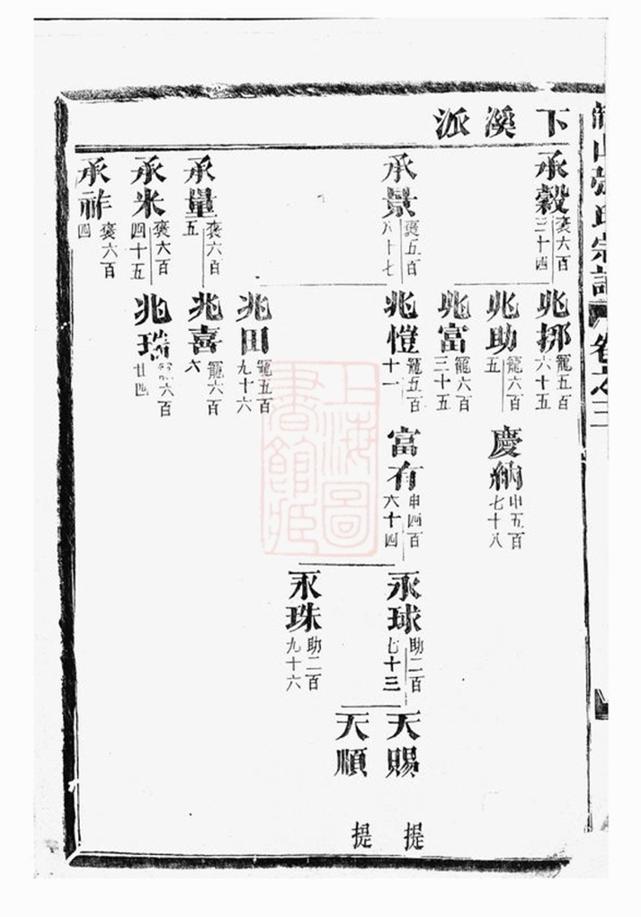 張氏宗譜 卷之三
下溪派
承穀 褒六百三十四
承景 褒五百八十七
承量 褒六百五
承米 褒六百四十五
承祚 褒六百四
兆挪 寵五百六十五
兆助 寵六百五
兆富 寵六百三十五
兆愷 寵五百十一
兆田 寵五百九十六
兆喜 寵六百六
兆瑞 六百廿四
慶納 申五百七十八
富有 申四百六十四
永球 助二百七十三
永珠 助二百九十六
天賜 提
天順 提
上海圖書館藏